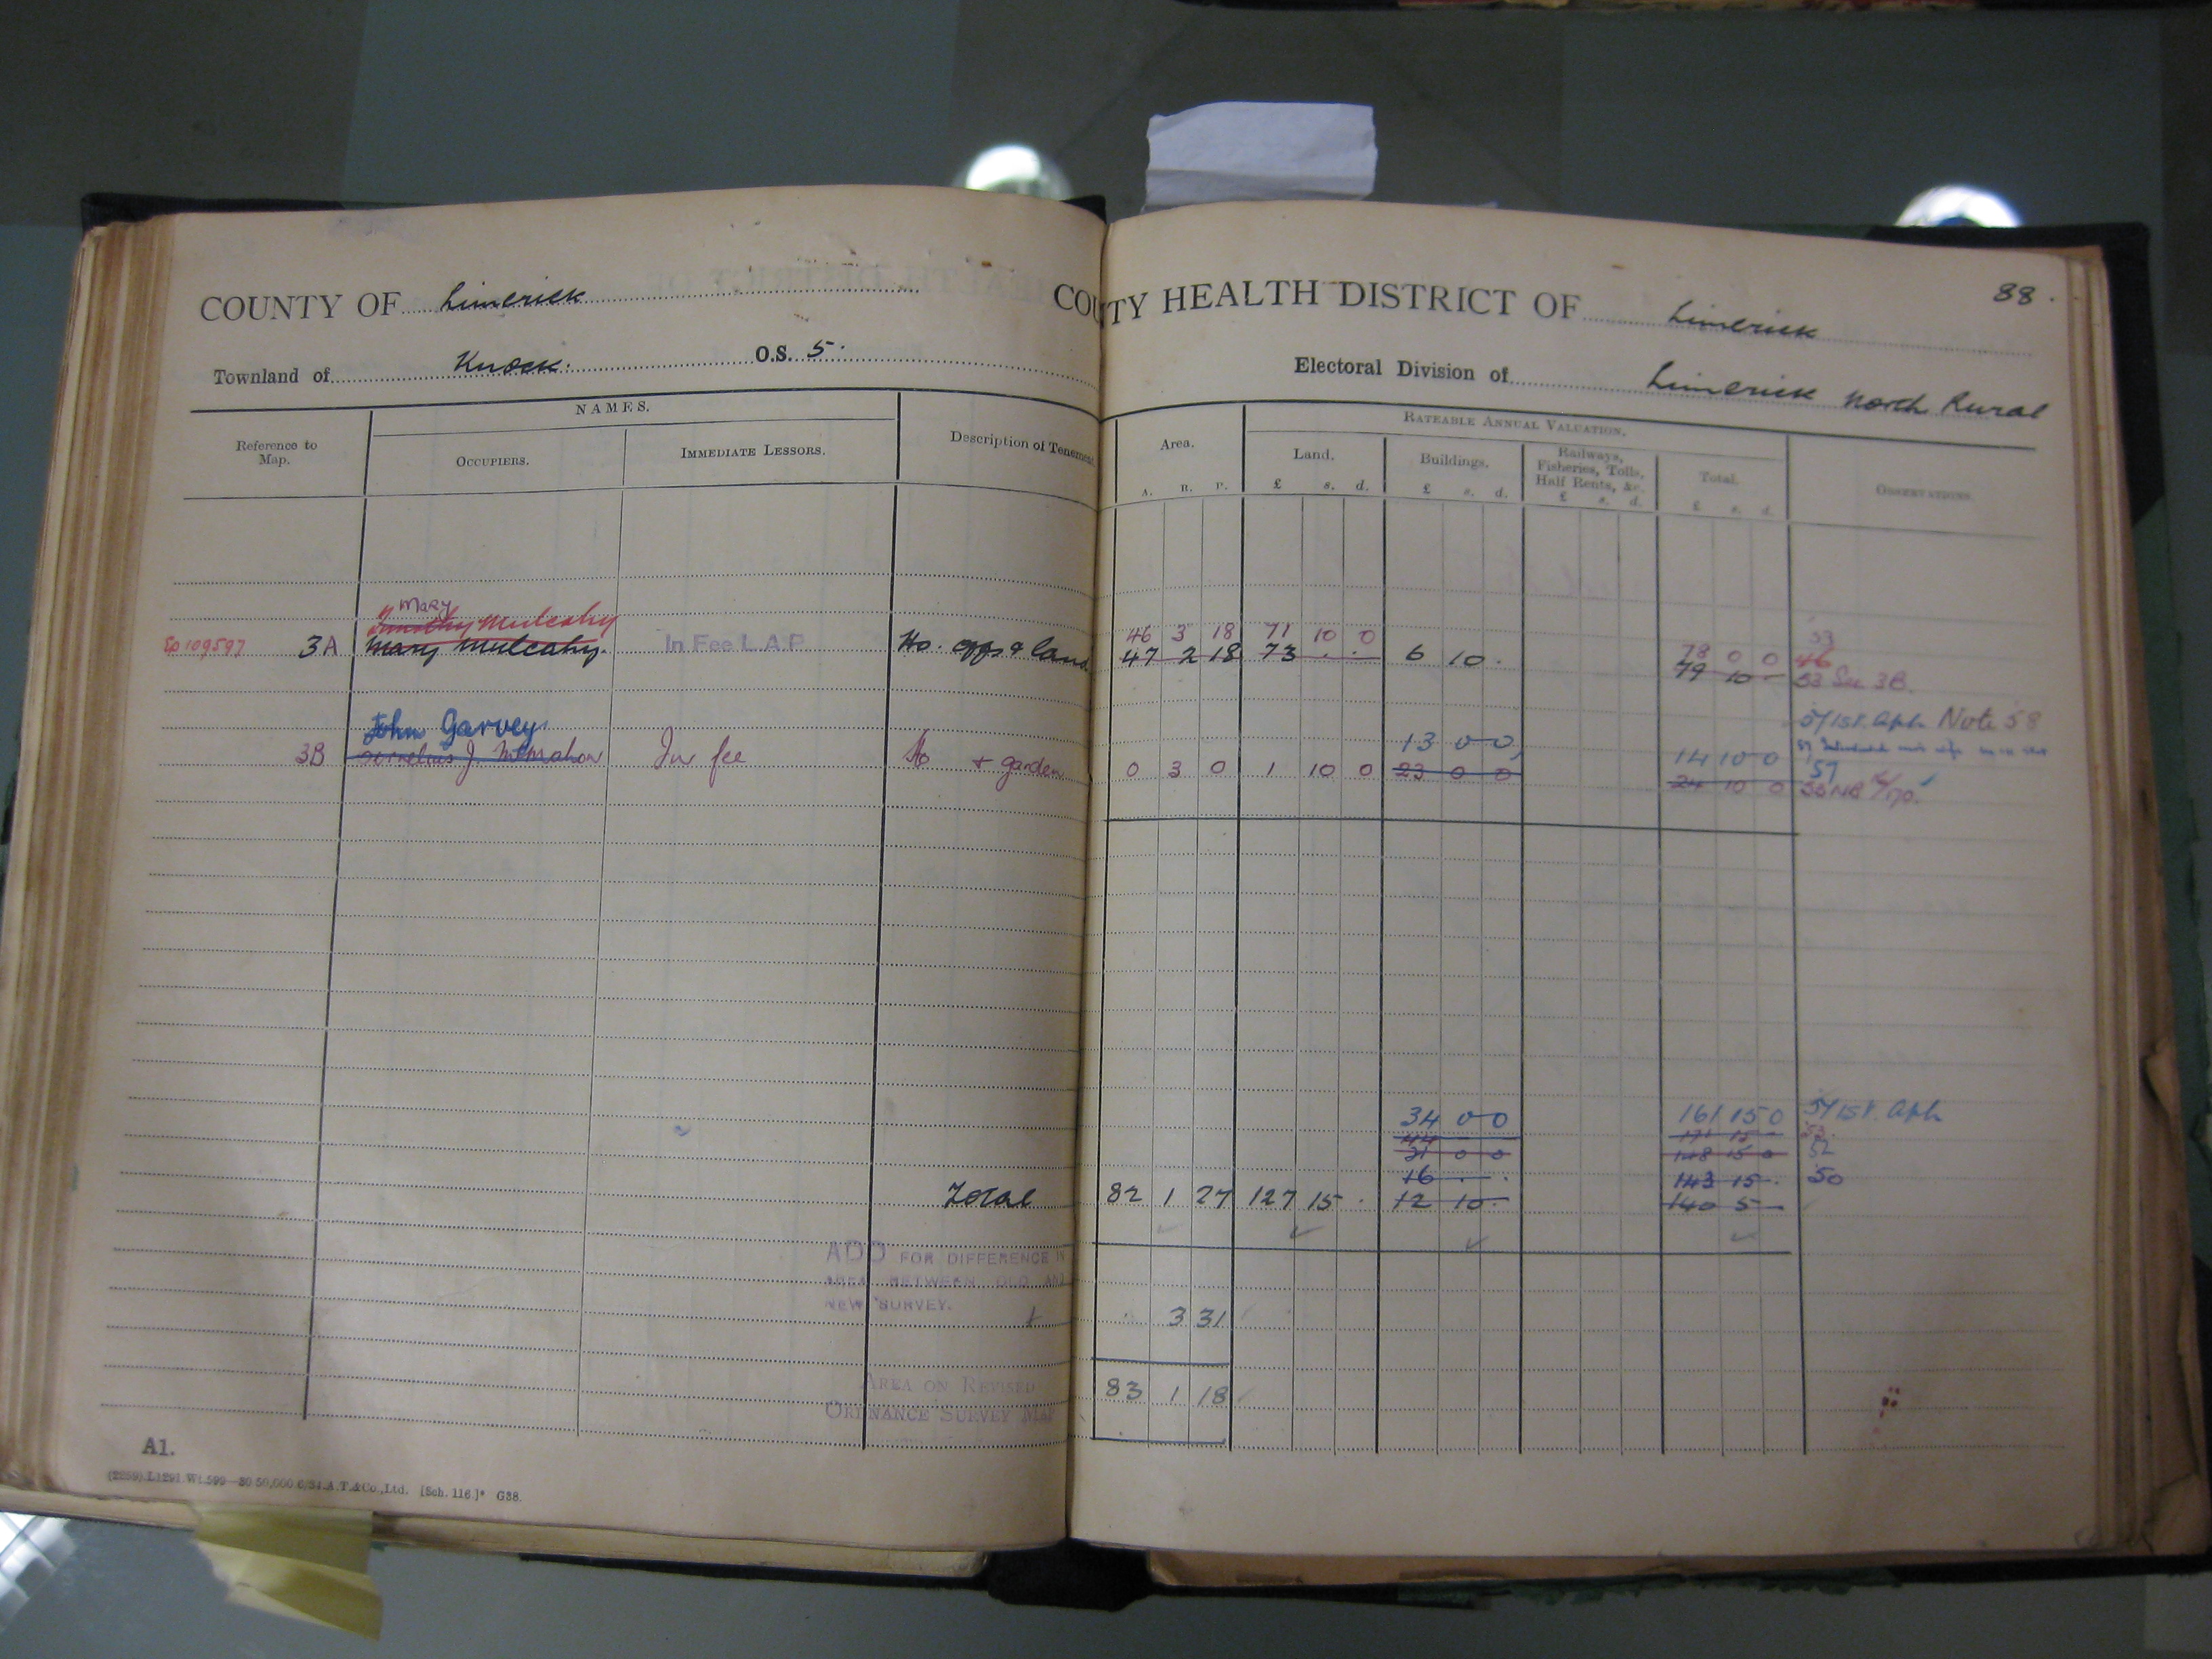 88.
COUNTY OF Limerick
COUNTY HEALTH DISTRICT OF Limerick
Townland of Knock. O.S. 5.
Electoral Division of Limerick North Rural
NAMES.
RATEABLE ANNUAL VALUATION.
Reference to Map. OCCUPIERS. IMMEDIATE LESSORS. Description of Tenement Area. Land. Buildings. Railways, Fisheries, Tolls, Half Rents, &c. Total. OBSERVATIONS.
A. R. P. £ s. d. £ s. d. £ s. d. £ s. d.
Mary
Timothy Mulcahy 46 3 18 71 10 0 78 0 0 53
46
109597 3A Mary Mulcahy. In Fee L.A.P. Ho. offs & land 47 2 18 73 . . 6 10 . 79 10 - 53 See 3B.
57 1st. Note 58
John Garvey 13 0 0 14 10 0 57
3B Cornelius J. McMahon In fee Ho + garden 0 3 0 1 10 0 23 0 0 24 10 0
34 0 0 161 15 0 57 1st.
44 - - 171 15 - 53.
21 0 0 148 15 0 52
16 . . 143 15 . 50
Total 82 1 27 127 15 . 12 10 . 140 5 -
ADD FOR DIFFERENCE IN
AREA BETWEEN OLD AND
NEW SURVEY. . 3 31
AREA ON REVISED
ORDNANCE SURVEY MAP 83 1 18
A1.
A.T.&Co.,Ltd. [Sch. 116.]* G38.